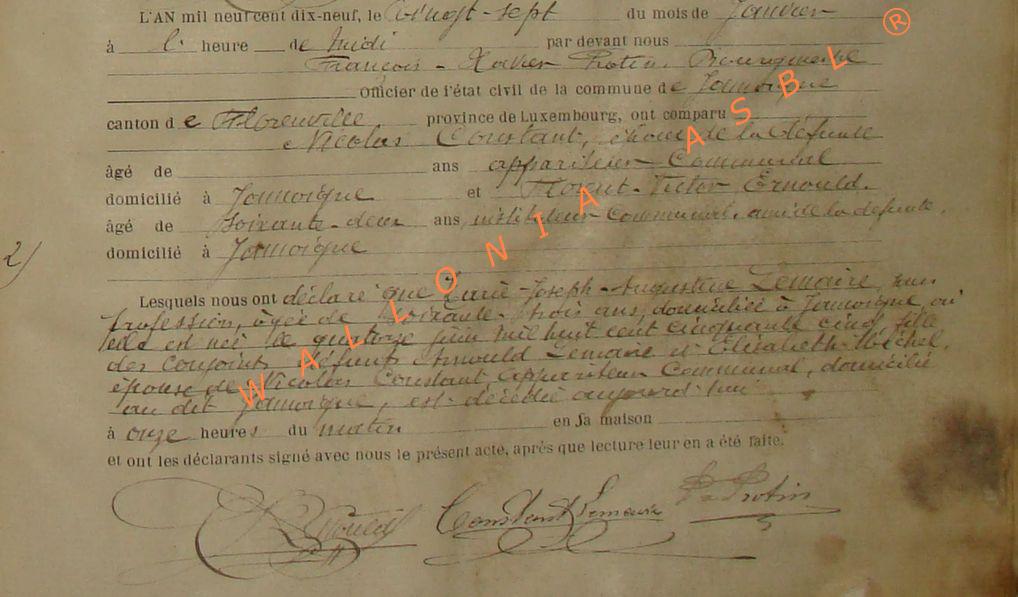 L'AN mil neuf cent dix-neuf, le vingt-sept du mois de Janvier
à l' heure de midi par devant nous
François - Xavier Protin, Bourgmestre
officier de l'état civil de la commune de Jamoigne
canton de Florenville province de Luxembourg, ont comparu
Nicolas Constant, époux de la défunte
âgé de ans appariteur Communal
domicilié à Jamoigne et Florent-Victor Ernould.
âgé de soixante-deux ans, instituteur communal, ami de la défunte,
domicilié à Jamoigne
2/
Lesquels nous ont déclaré que Marie-Joseph-Augustine Lemaire, sans
profession, âgée de soixante-trois ans, domiciliée à Jamoigne, où
elle est née le quatorze juin mil huit cent cinquante cinq, fille
des conjoints défunts Arnould Lemaire et Elisabeth
épouse de Nicolas Constant appariteur Communal, domicilié
au dit Jamoigne, est décédée aujourd'hui
à onze heures du matin en sa maison
et ont les déclarants signé avec nous le présent acte, après que lecture leur en a été faite.
Constant Lemaire Protin
WALLONIA ASBL ®